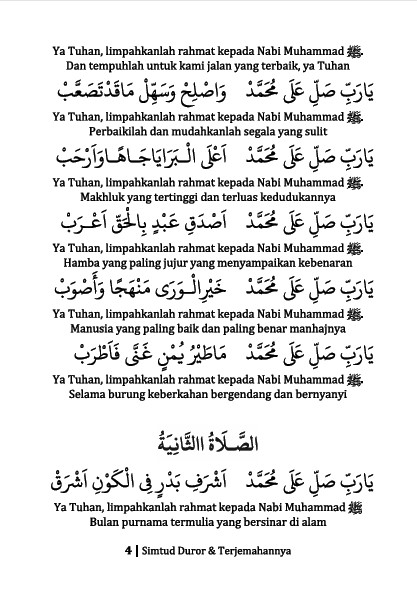 Ya Tuhan, limpahkanlah rahmat kepada Nabi Muhammad ﷺ.
Dan tempuhlah untuk kami jalan yang terbaik, ya Tuhan
يَارَبِّ صَلِّ عَلَى مُحَمَّدْ وَاصْلِحْ وَسَهِّلْ مَاقَدْتَصَعَّبْ
Ya Tuhan, limpahkanlah rahmat kepada Nabi Muhammad ﷺ.
Perbaikilah dan mudahkanlah segala yang sulit
يَارَبِّ صَلِّ عَلَى مُحَمَّدْ اَعْلَى الْـبَرَايَاجَـاهًـاوَاَرْحَبْ
Ya Tuhan, limpahkanlah rahmat kepada Nabi Muhammad ﷺ.
Makhluk yang tertinggi dan terluas kedudukannya
يَارَبِّ صَلِّ عَلَى مُحَمَّدْ اَصْدَقِ عَبْدٍ بِالْحَقِّ اَعْـرَبْ
Ya Tuhan, limpahkanlah rahmat kepada Nabi Muhammad ﷺ.
Hamba yang paling jujur yang menyampaikan kebenaran
يَارَبِّ صَلِّ عَلَى مُحَمَّدْ خَيْرِالْـوَرَى مَنْهَجًا وَأَصْوَبْ
Ya Tuhan, limpahkanlah rahmat kepada Nabi Muhammad ﷺ.
Manusia yang paling baik dan paling benar manhajnya
يَارَبِّ صَلِّ عَلَى مُحَمَّدْ مَاطَيْرُ يُمْنٍ غَنَّى فَاَطْرَبْ
Ya Tuhan, limpahkanlah rahmat kepada Nabi Muhammad ﷺ.
Selama burung keberkahan bergendang dan bernyanyi
الصَّـلَاةُ االثَّانِيَةُ
يَارَبِّ صَلِّ عَلَى مُحَمَّدْ اَشْرَفِ بَدْرٍ فِى الْكَوْنِ اَشْرَقْ
Ya Tuhan, limpahkanlah rahmat kepada Nabi Muhammad ﷺ
Bulan purnama termulia yang bersinar di alam
4 | Simtud Duror & Terjemahannya